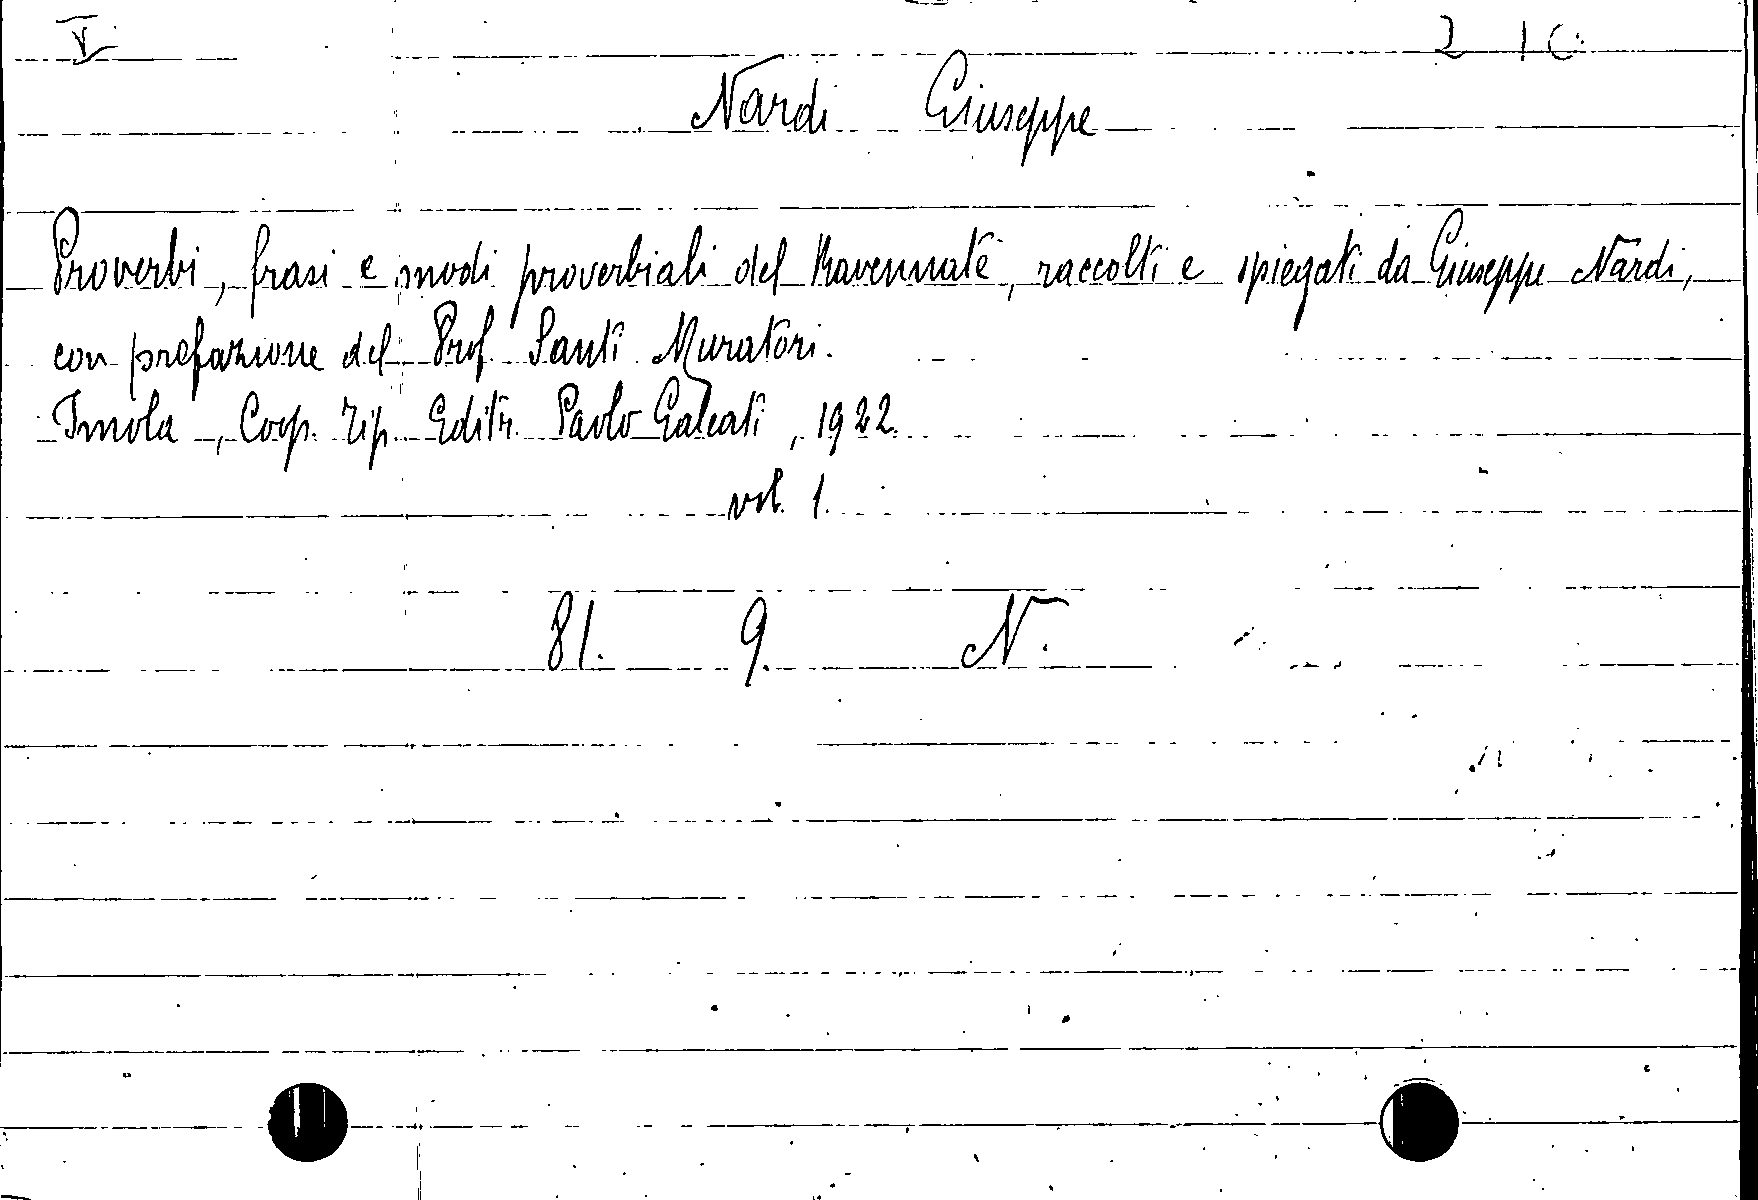 V
Nardi Giuseppe
Proverbi, frasi e modi proverbiali del Ravennate, raccolti e spiegati da Giuseppe Nardi,
con prefazione del Prof. Santi Muratori.
Imola, Coop. Tip. Editr. Paolo Galeati, 1922.
vol. 1.
81. 9. N.